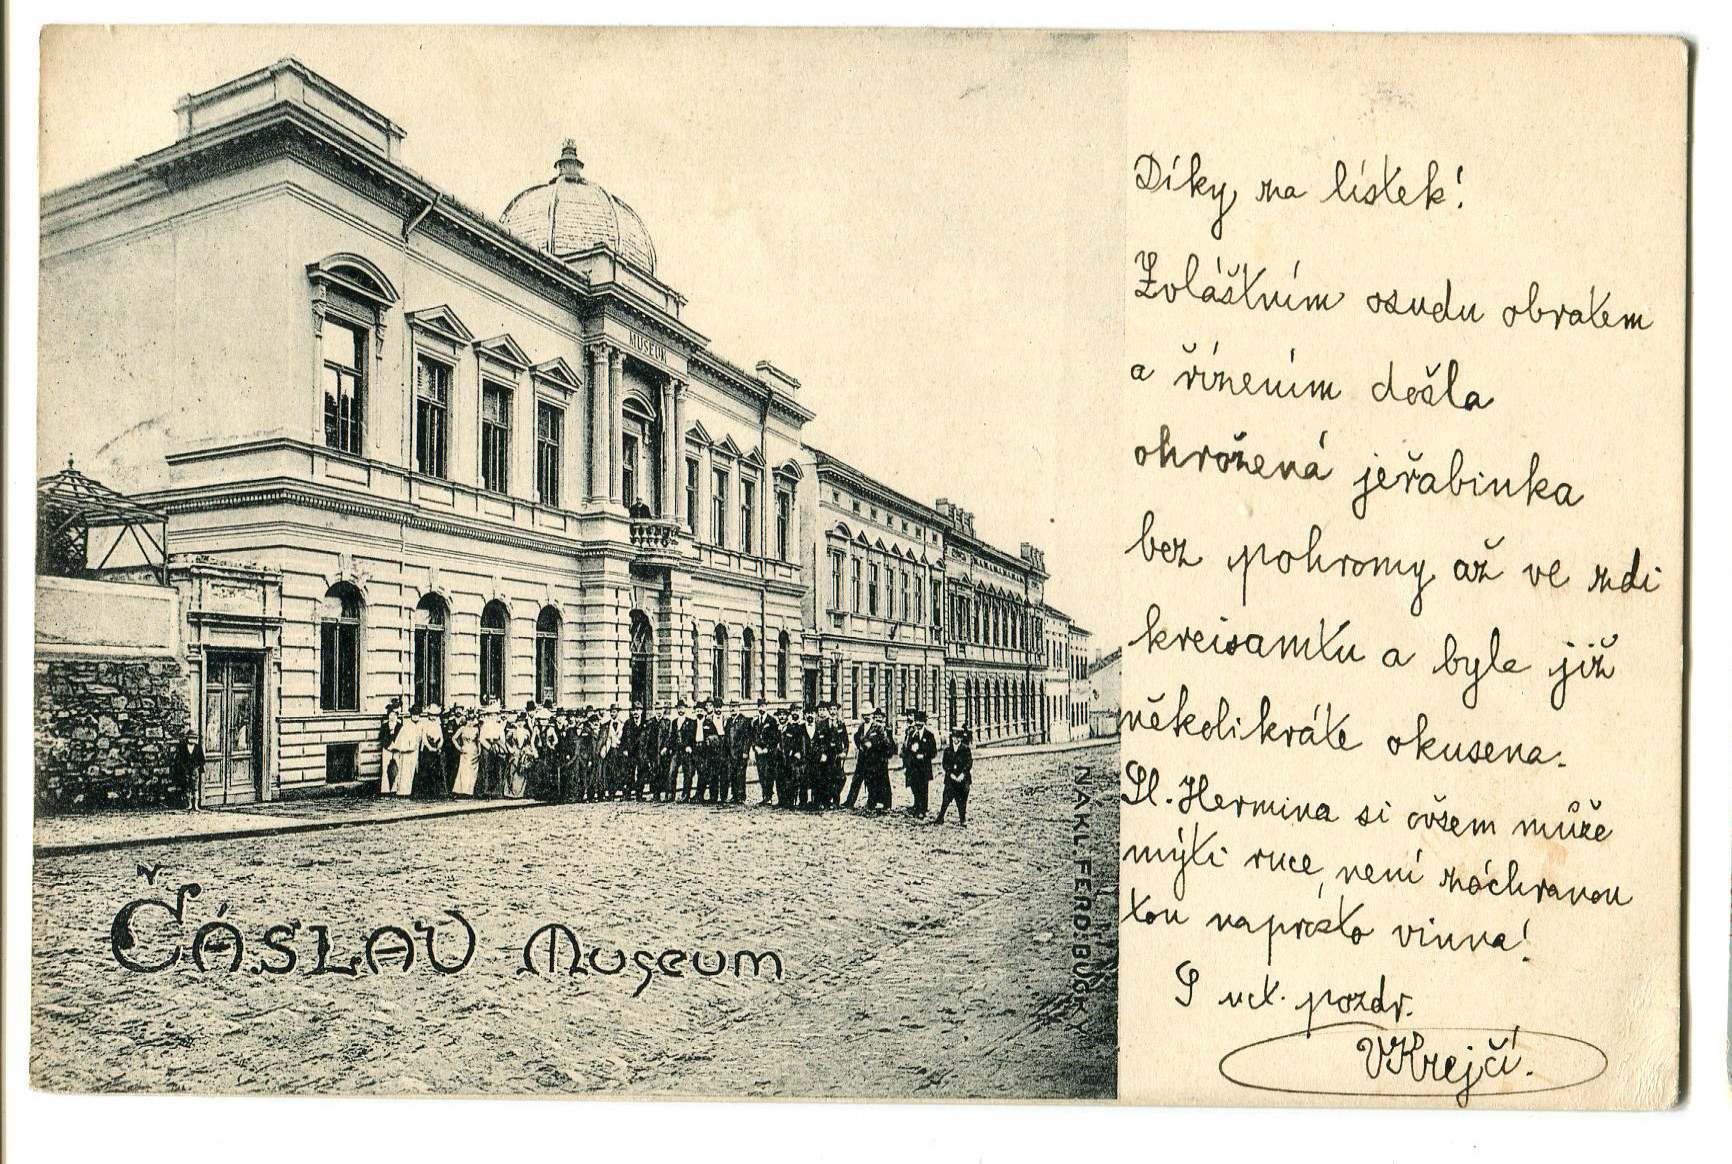 MUSEUM
ČÁSLAV Museum
NÁKL. FERD. BUČKÝ
Díky za lístek!
Zvláštním osudu obratem
a řízením došla
ohrožená jeřabinka
bez pohromy až ve zdi
kreisamtu a byla již
několikráte okusena.
Sl. Hermina si ovšem může
mýti ruce, není záchranou
tou naprosto vinna!
S uct. pozdr.
VKrejčí.